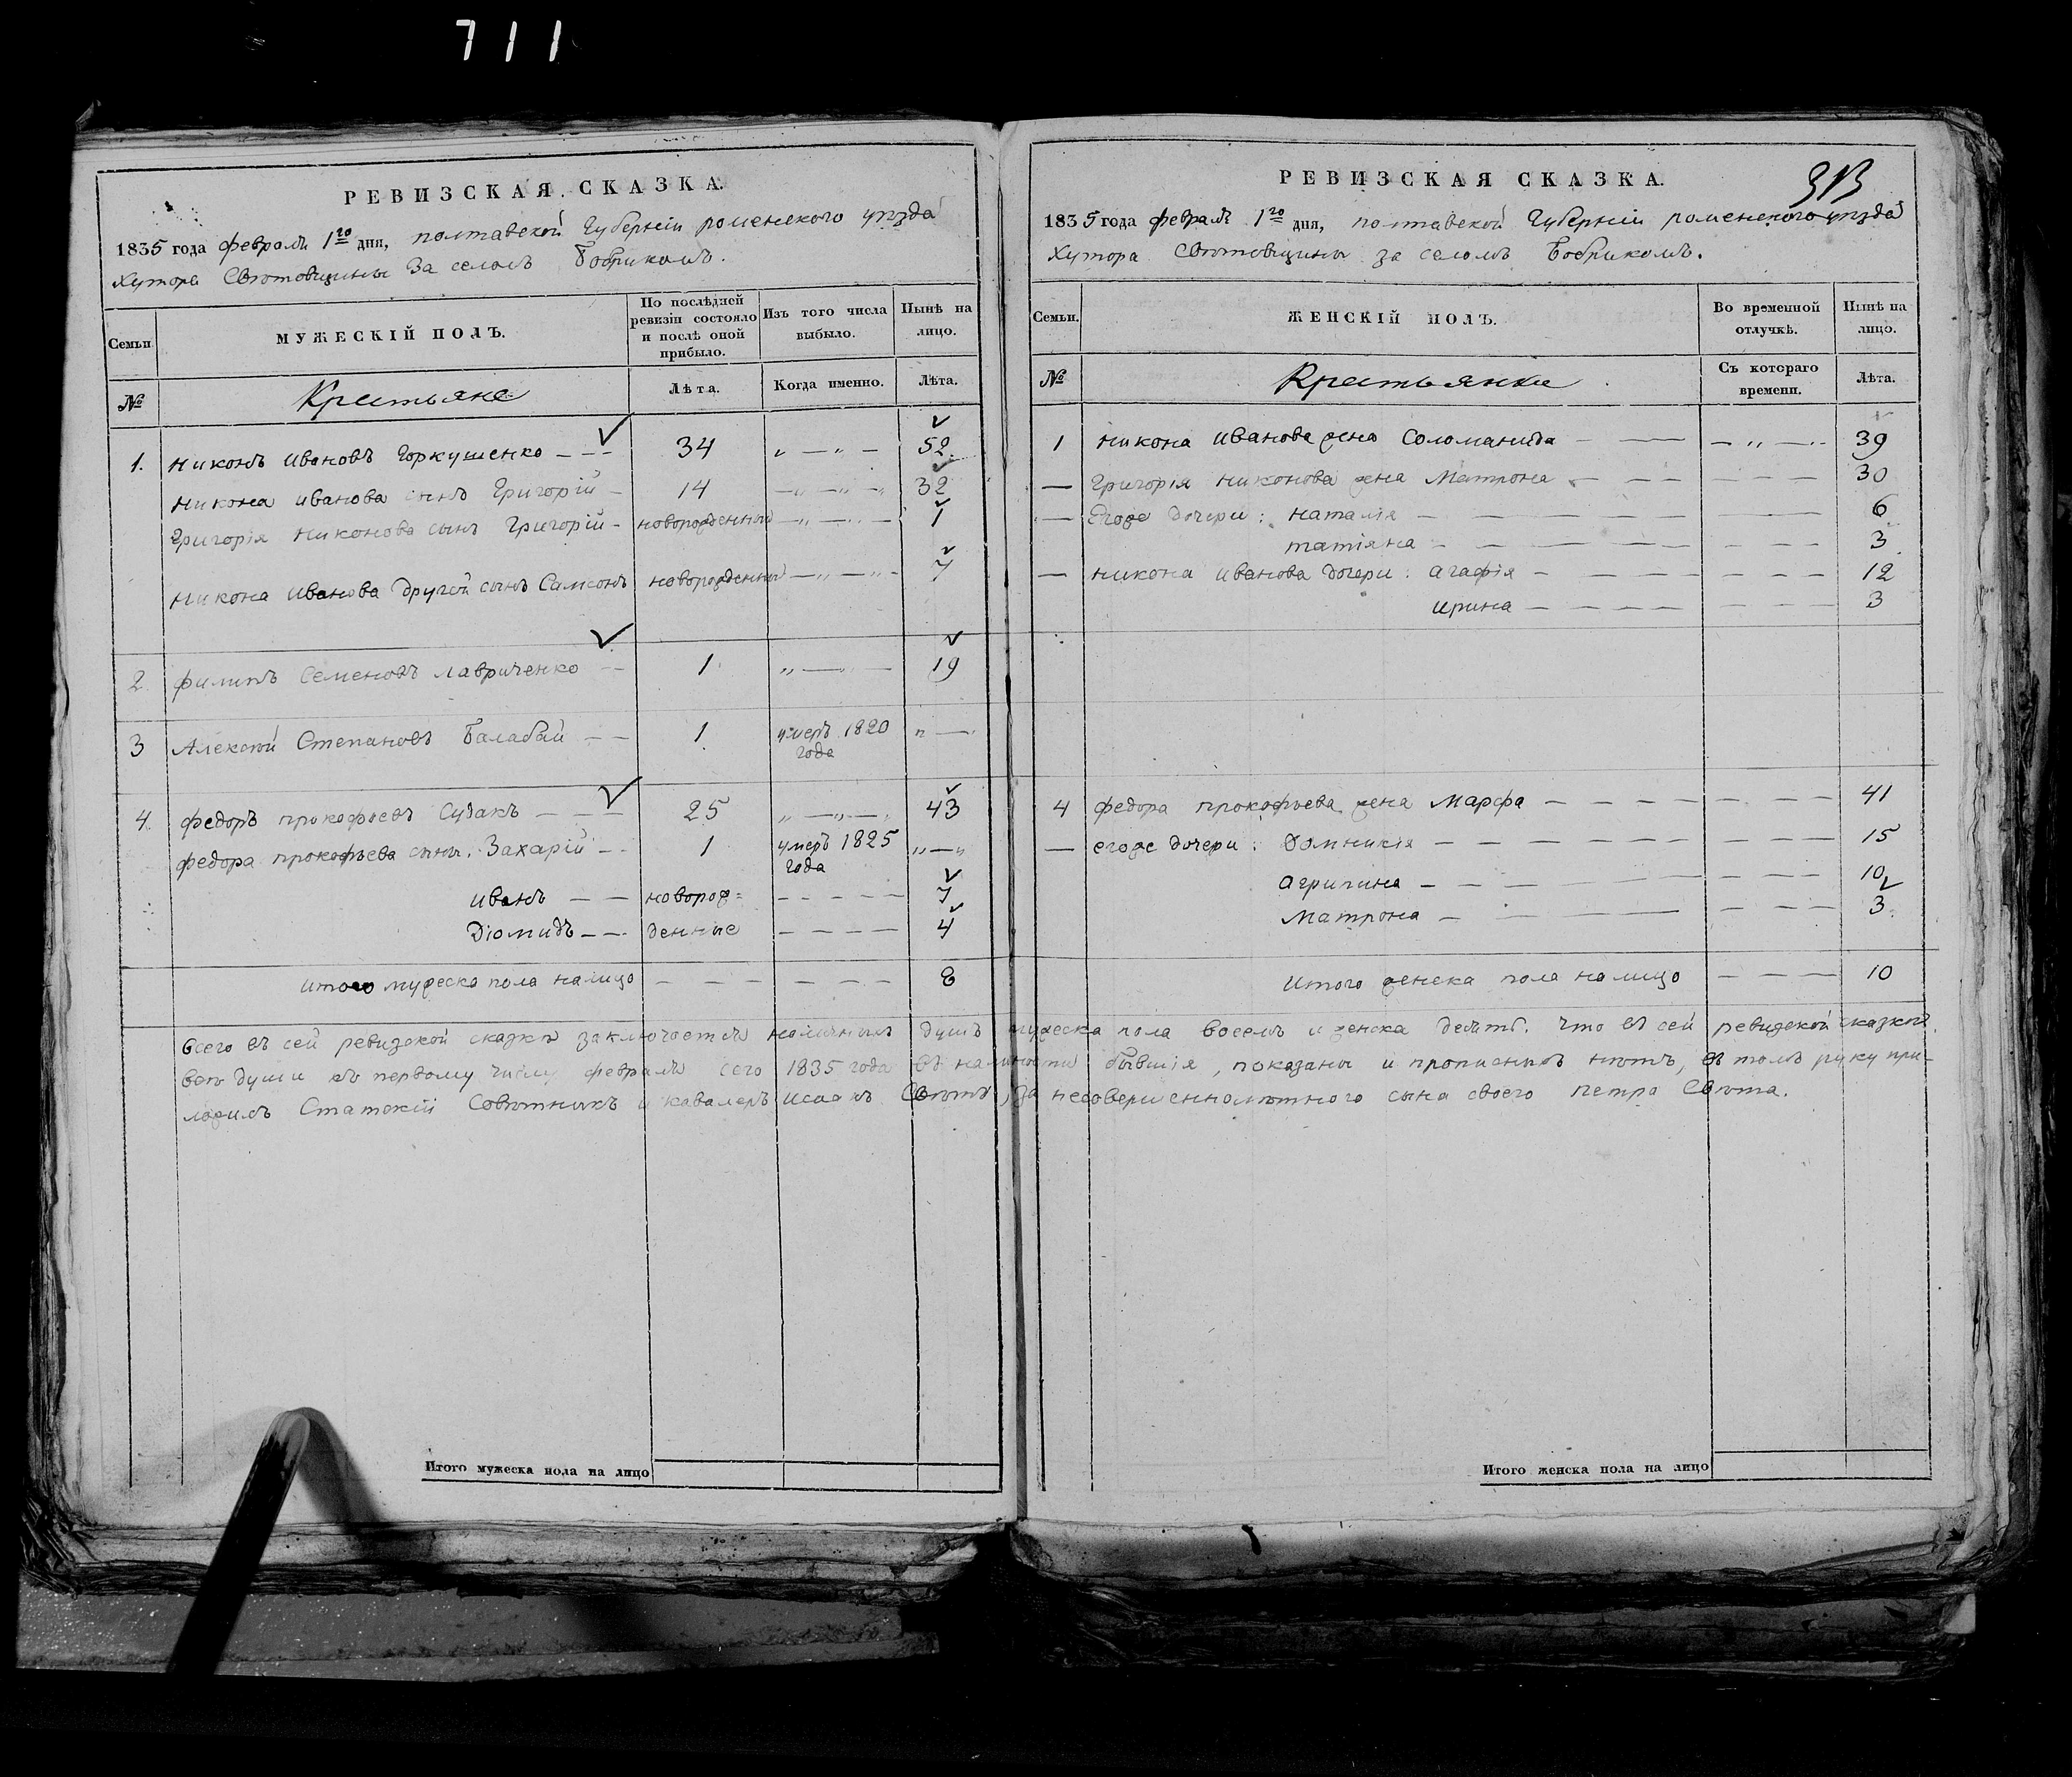 711
РЕВИЗСКАЯ СКАЗКА.
1835 года февраля 1го дня, полтавской Губерніи роменского уѣзда
Хутора Свѣтовщины За селомъ Бобрикомъ.
Семьи
МУЖЕСКІЙ ПОЛЪ.
По послѣдней ревизіи состояло и послѣ оной прибыло.
Изъ того числа выбыло.
Нынѣ на лицо.
№
Крестьяне
Лѣта.
Когда именно.
Лѣта.
1. Никонъ Ивановъ Горкушенко — 34 „ — „ — 52.
Никона Иванова сынъ Григорій — 14 — „ — „ — „ 32
Григорія Никонова сынъ Григорій — новорожденный — „ — „ — 1
Никона Иванова другой сынъ Самсонъ новорожденный — „ — „ — 7
2. Филипъ Семеновъ Лавриченко — 1. „ — „ — 19
3 Алексѣй Степановъ Балабай — — 1. умеръ 1820 „ —
года
4. Федоръ прокофьевъ Судакъ — — — 25 „ — „ — „ 43
Федора прокофьева сыны. Захарій — 1 умеръ 1825 „ — „
года
Иванъ — — новорож= — — — — — 7
Діомидъ — — денные — — — — 4
Итого мужеска пола налицо — — — — — — 8
Всего въ сей ревизской сказкѣ заключается наличныхъ душъ мужеска пола восемь и женска десять. Что въ сей ревизской сказкѣ
всѣ души къ первому числу февраля сего 1835 года въ наличности бывшія, показаны и прописныхъ нѣтъ, въ томъ руку при-
ложилъ Статскій Совѣтникъ и кавалеръ Исаакъ Свѣтъ, за несовершеннолѣтного сына своего Петра Свѣта.
Итого мужеска пола на лицо
РЕВИЗСКАЯ СКАЗКА.
313
1835 года февраля 1го дня, полтавской Губерніи роменского уѣзда
Хутора Свѣтовщины за селомъ Бобрикомъ.
Семьи.
ЖЕНСКІЙ ПОЛЪ.
Во временной отлучкѣ.
Нынѣ на лицо.
№
Крестьянки
Съ котораго времени.
Лѣта.
1 Никона Иванова жена Соломанида — — — „ — „ 39
— Григорія Никонова жена Матрона — — — — — — 30
— Егоже дочери: Наталія — — — — — — 6
татіяна — — — — — — — — 3
— Никона Иванова дочери: Агафія — — — — — — — 12
Ирина — — — — — — — 3
4 Федора прокофьева жена Марфа — — — — — — — 41
— егоже дочери: Домникія — — — — — — — — 15
Агрипина — — — — — — — — 10
Матрона — — — — — — 3.
Итого женска пола налицо — — — 10
Итого женска пола на лицо